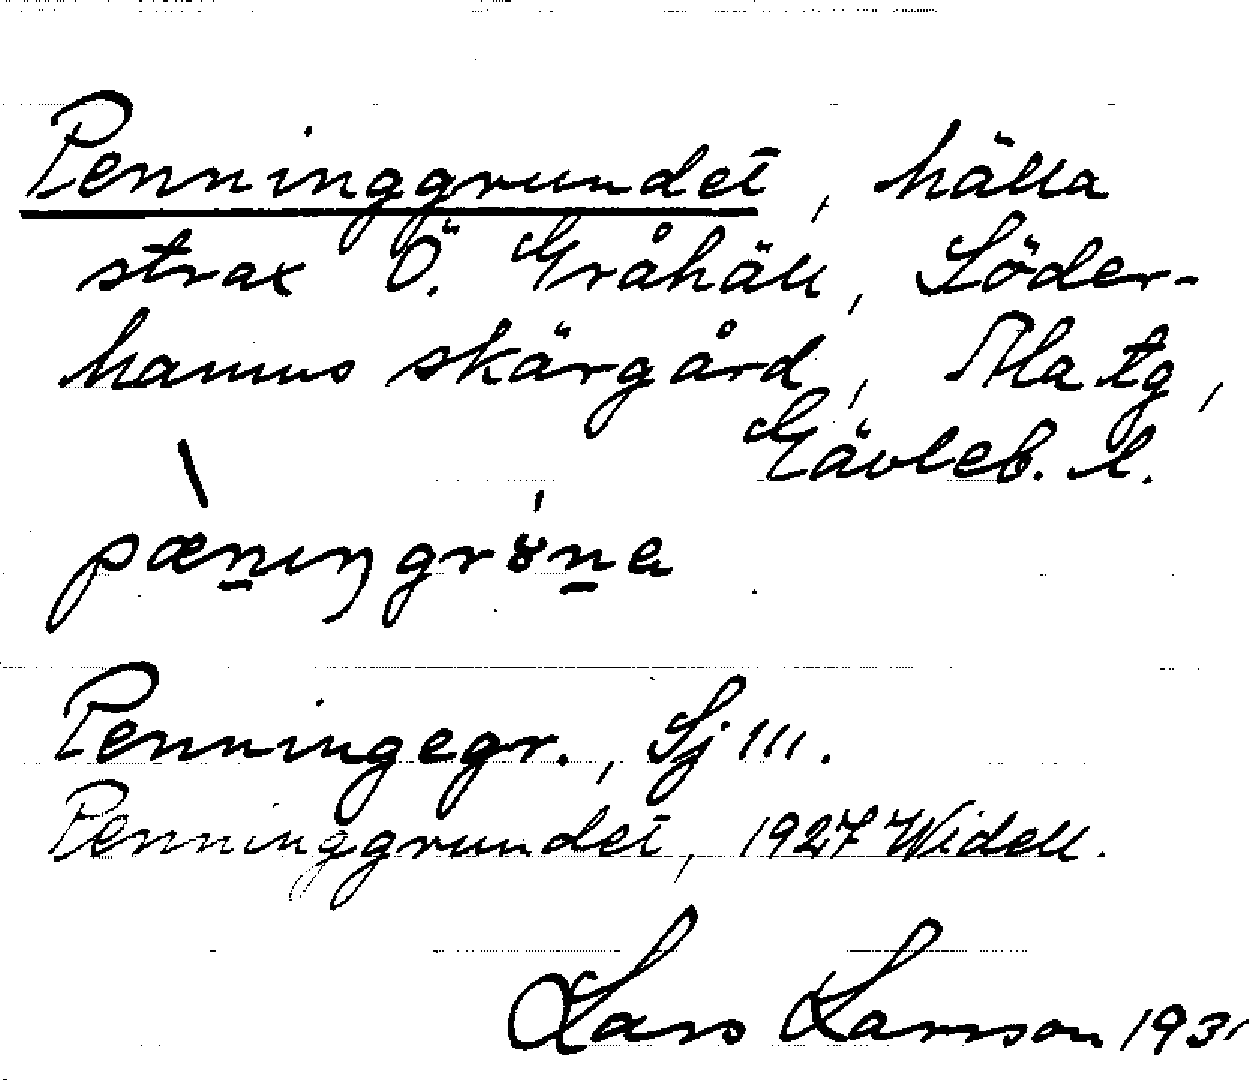 Penninggrundet, hälla
strax Ö. Gråhäll, Söder-
hamns skärgård, Ala tg,
Gävleb. l.
pæ̀n̲ıŋgrɤ́n̲a
Penningegr., Sj III.
Penninggrundet, 1927 Widell.
Lars Larsson 193